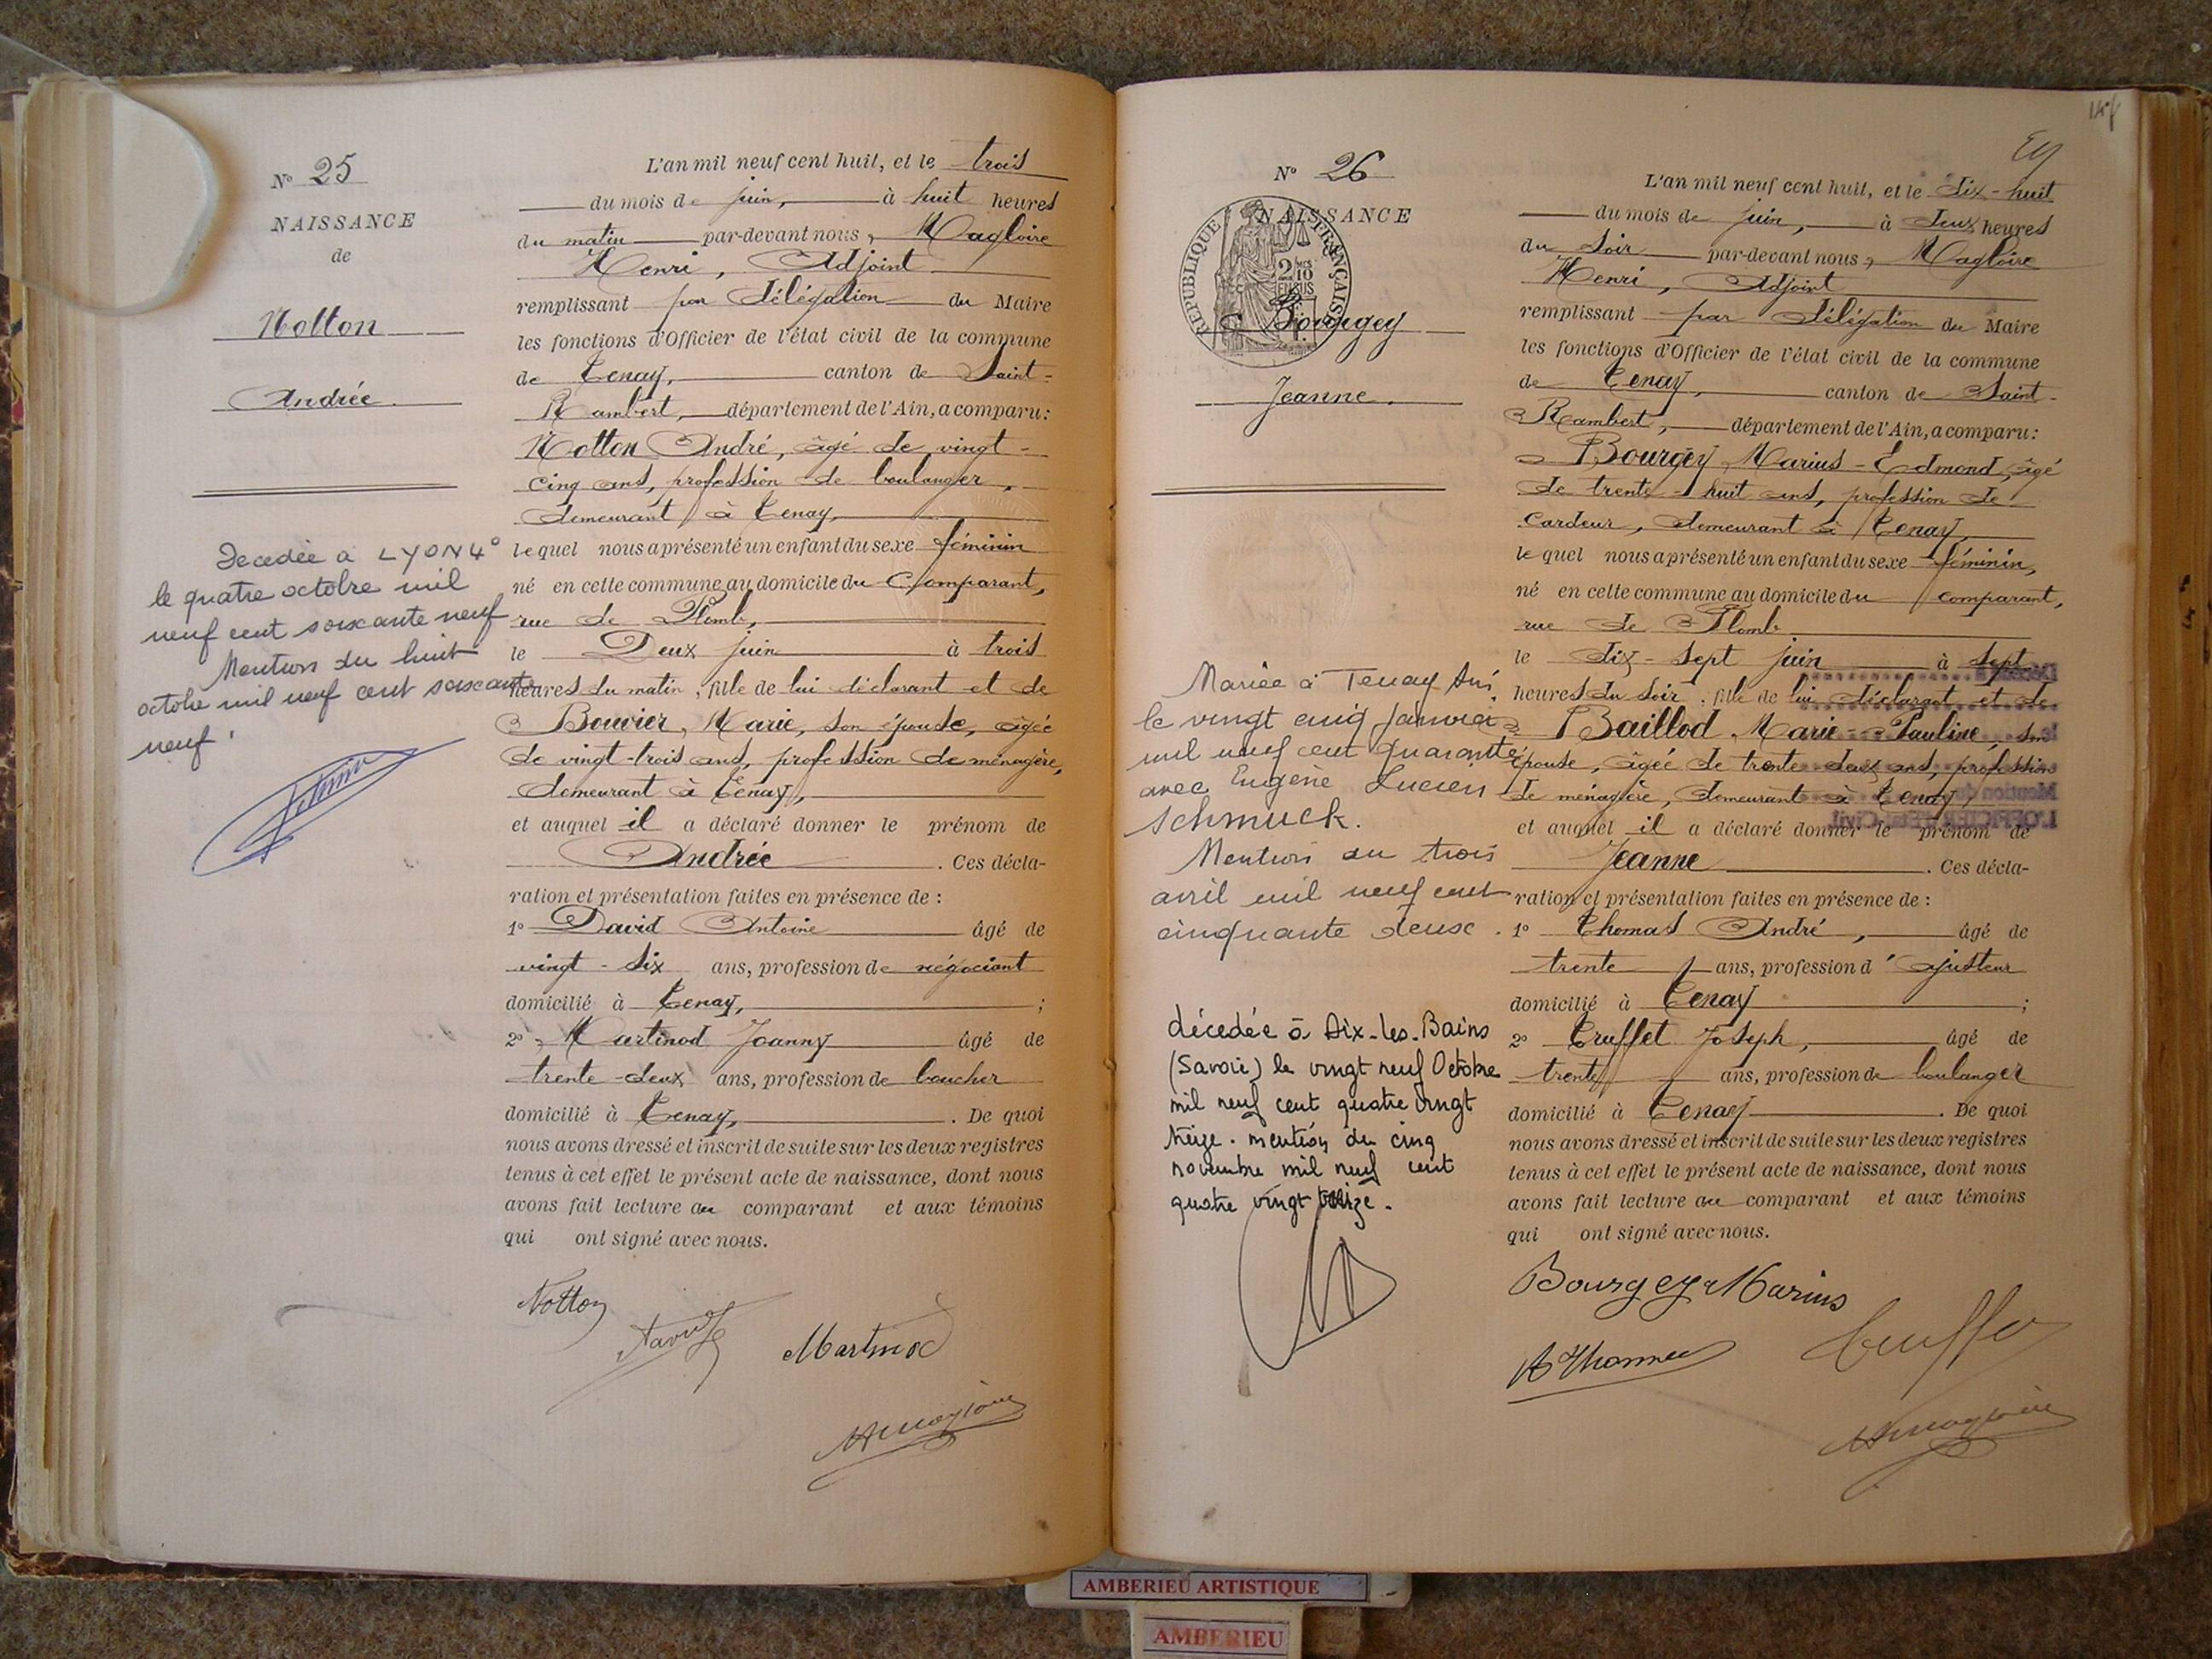 N° 25
NAISSANCE
de
Notton
Andrée
Décédée à LYON 4°
le quatre octobre mil
neuf cent soixante neuf
Mention du huit
octobre mil neuf cent soixante
neuf.
L'an mil neuf cent huit, et le trois
du mois de juin, à huit heures
du matin par-devant nous, Magloire
Henri, Adjoint
remplissant par délégation du Maire
les fonctions d'Officier de l'état civil de la commune
de Tenay, canton de Saint-
Rambert, département de l'Ain, a comparu:
Notton André, âgé de vingt-
cinq ans, profession de boulanger,
demeurant à Tenay,
lequel nous a présenté un enfant du sexe féminin
né en cette commune au domicile du Comparant,
rue de Plomb,
le Deux juin à trois
heures du matin, fille de lui déclarant et de
Bouvier, Marie, son épouse, âgée
de vingt-trois ans, profession de ménagère,
demeurant à Tenay,
et auquel il a déclaré donner le prénom de
Andrée. Ces décla-
ration et présentation faites en présence de :
1° David Antoine âgé de
vingt-six ans, profession de négociant
domicilié à Tenay, ;
2° Martinod Joanny âgé de
trente-deux ans, profession de boucher
domicilié à Tenay, . De quoi
nous avons dressé et inscrit de suite sur les deux registres
tenus à cet effet le présent acte de naissance, dont nous
avons fait lecture au comparant et aux témoins
qui ont signé avec nous.
Notton
David
Martinod
HMagloire
N° 26
NAISSANCE
REPUBLIQUE FRANÇAISE
Bourgey
Jeanne.
Mariée à Tenay Ain
le vingt cinq janvier
mil neuf cent quarante
avec Eugène Lucien
Schmuck.
Mention du trois
avril mil neuf cent
cinquante deux.
décédée à Aix-les-Bains
(Savoie) le vingt neuf Octobre
mil neuf cent quatre vingt
treize. mention du cinq
novembre mil neuf cent
quatre vingt treize.
L'an mil neuf cent huit, et le dix-huit
du mois de juin, à deux heures
du soir par-devant nous, Magloire
Henri, Adjoint
remplissant par délégation du Maire
les fonctions d'Officier de l'état civil de la commune
de Tenay, canton de Saint-
Rambert, département de l'Ain, a comparu:
Bourgey Marius-Edmond, âgé
de trente-huit ans, profession de
cardeur, demeurant à Tenay,
lequel nous a présenté un enfant du sexe féminin,
né en cette commune au domicile du comparant,
rue de Plomb
le dix-sept juin à sept
heures du soir, fille de lui déclarant et de
Baillod Marie-Pauline, son
épouse, âgée de trente-deux ans, profession
de ménagère, demeurant à Tenay,
et auquel il a déclaré donner le prénom de
Jeanne. Ces décla-
ration et présentation faites en présence de :
1° Thomas André, âgé de
trente ans, profession d'ajusteur
domicilié à Tenay ;
2° Truffet Joseph, âgé de
trente ans, profession de boulanger
domicilié à Tenay. De quoi
nous avons dressé et inscrit de suite sur les deux registres
tenus à cet effet le présent acte de naissance, dont nous
avons fait lecture au comparant et aux témoins
qui ont signé avec nous.
Bourgey Marius
A Thomas
Truffet
HMagloire
AMBERIEU ARTISTIQUE
AMBERIEU